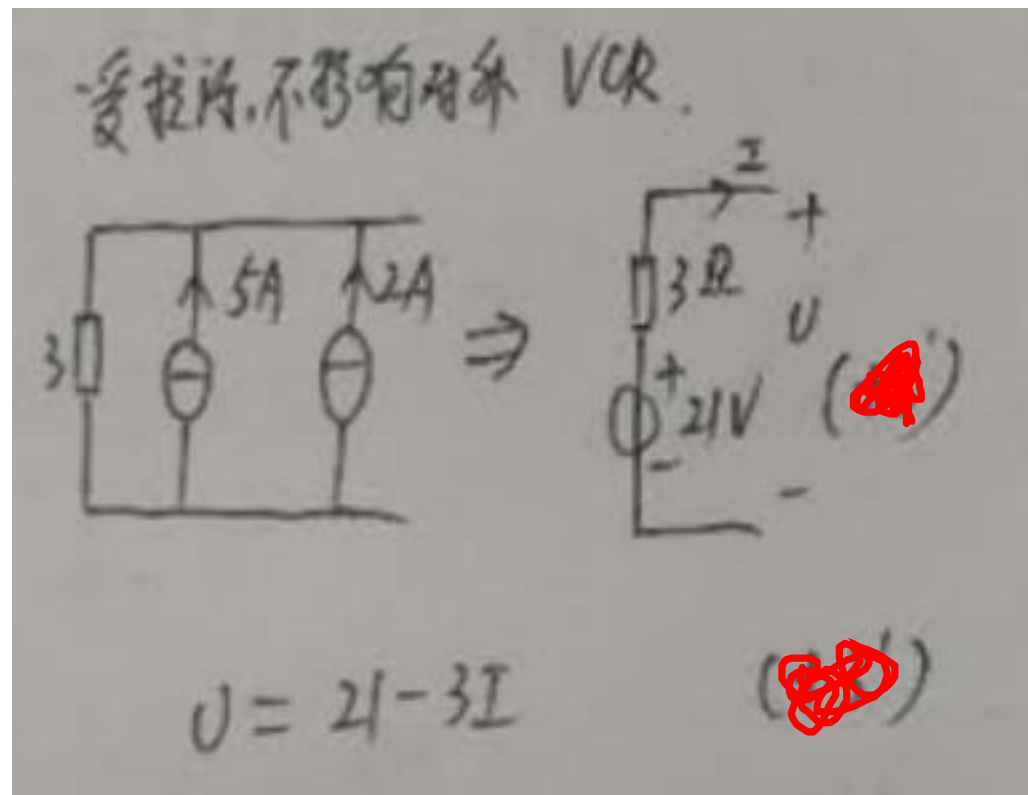 受控源,不影响对外 VCR.
I
+
5A 2A ⇒ 3Ω
3 U
+ 21V ( )
-
-
U = 21-3I ( )